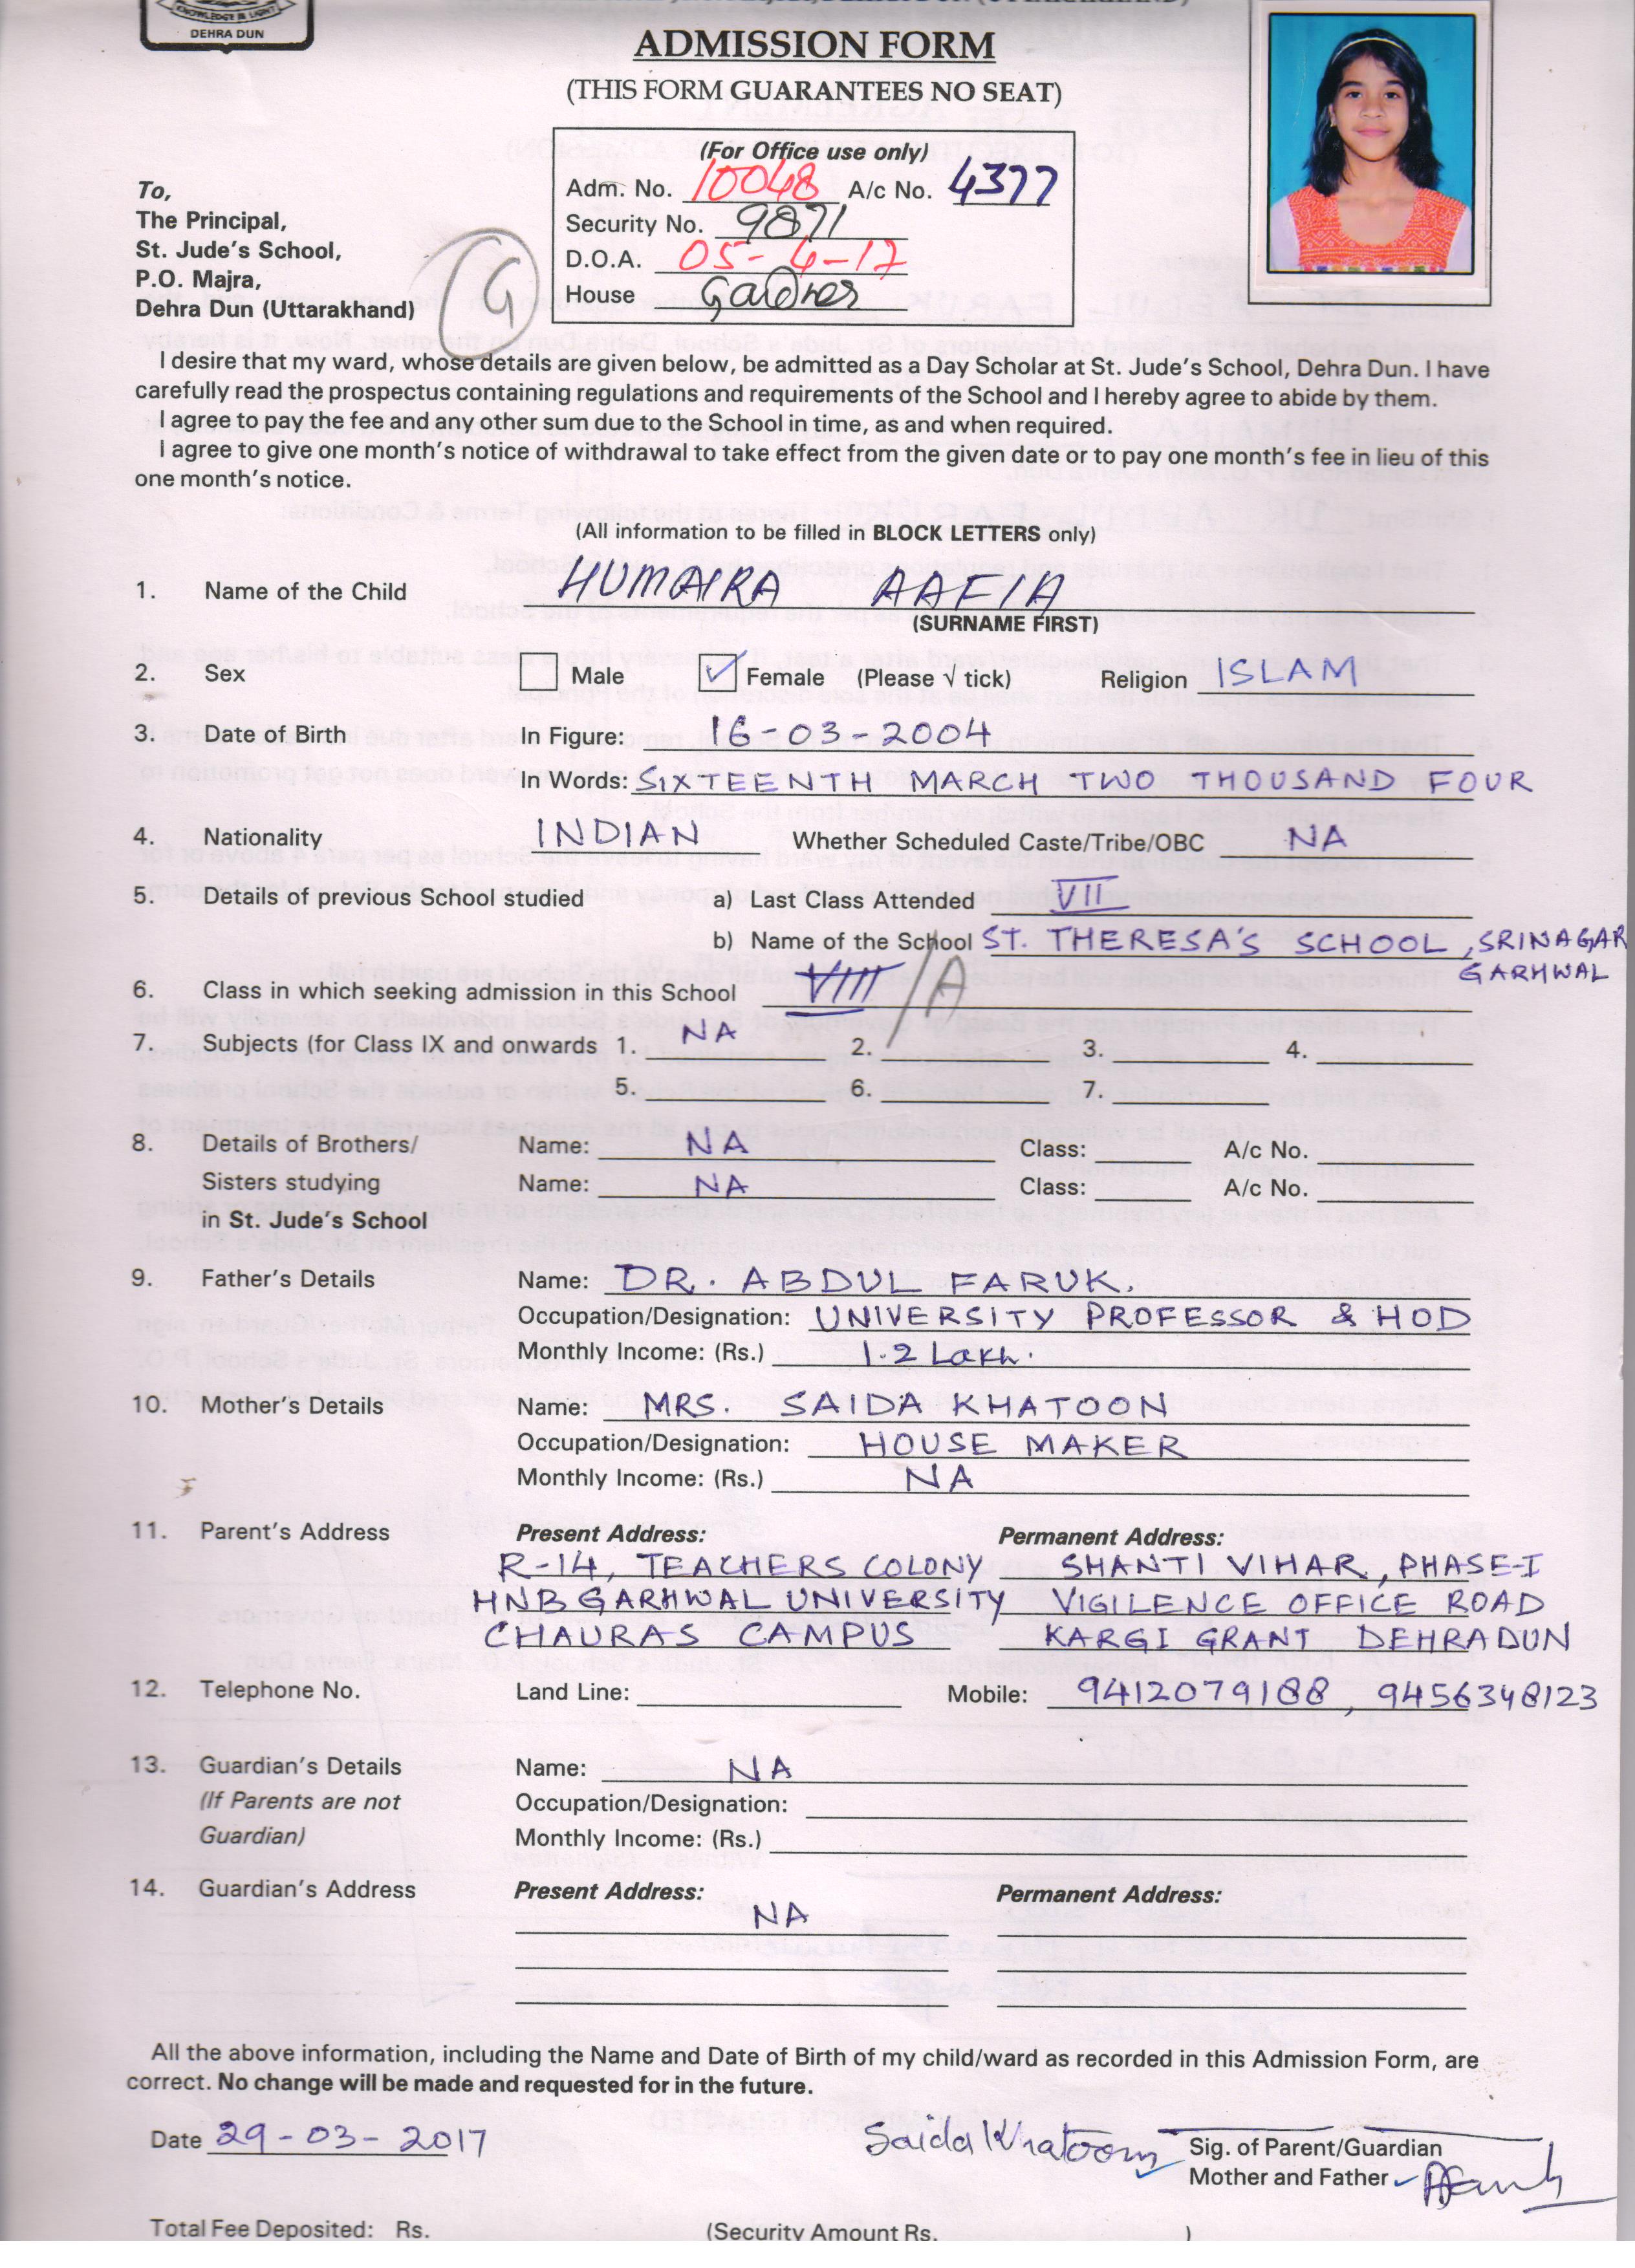 KNOWLEDGE IS LIGHT
DEHRA DUN
ADMISSION FORM
(THIS FORM GUARANTEES NO SEAT)
(For Office use only)
Adm. No. 10048 A/c No. 4377
Security No. 9871
D.O.A. 05-4-17
House Gardner
To,
The Principal,
St. Jude's School,
P.O. Majra,
Dehra Dun (Uttarakhand)
G
I desire that my ward, whose details are given below, be admitted as a Day Scholar at St. Jude's School, Dehra Dun. I have
carefully read the prospectus containing regulations and requirements of the School and I hereby agree to abide by them.
I agree to pay the fee and any other sum due to the School in time, as and when required.
I agree to give one month's notice of withdrawal to take effect from the given date or to pay one month's fee in lieu of this
one month's notice.
(All information to be filled in BLOCK LETTERS only)
1. Name of the Child HUMAIRA AAFIA
(SURNAME FIRST)
2. Sex Male ✓ Female (Please √ tick) Religion ISLAM
3. Date of Birth In Figure: 16-03-2004
In Words: SIXTEENTH MARCH TWO THOUSAND FOUR
4. Nationality INDIAN Whether Scheduled Caste/Tribe/OBC NA
5. Details of previous School studied a) Last Class Attended VII
b) Name of the School ST. THERESA'S SCHOOL, SRINAGAR
GARHWAL
6. Class in which seeking admission in this School VIII /A
7. Subjects (for Class IX and onwards 1. NA 2. 3. 4.
5. 6. 7.
8. Details of Brothers/ Name: NA Class: A/c No.
Sisters studying Name: NA Class: A/c No.
in St. Jude's School
9. Father's Details Name: DR. ABDUL FARUK.
Occupation/Designation: UNIVERSITY PROFESSOR & HOD
Monthly Income: (Rs.) 1.2 Lakh.
10. Mother's Details Name: MRS. SAIDA KHATOON
Occupation/Designation: HOUSE MAKER
Monthly Income: (Rs.) NA
11. Parent's Address Present Address: Permanent Address:
R-14, TEACHERS COLONY SHANTI VIHAR, PHASE-I
HNB GARHWAL UNIVERSITY VIGILENCE OFFICE ROAD
CHAURAS CAMPUS KARGI GRANT DEHRADUN
12. Telephone No. Land Line: Mobile: 9412079188, 9456348123
13. Guardian's Details Name: NA
(If Parents are not Occupation/Designation:
Guardian) Monthly Income: (Rs.)
14. Guardian's Address Present Address: Permanent Address:
NA
All the above information, including the Name and Date of Birth of my child/ward as recorded in this Admission Form, are
correct. No change will be made and requested for in the future.
Date 29-03-2017 Saida Khatoon Sig. of Parent/Guardian
Mother and Father
Total Fee Deposited: Rs. (Security Amount Rs. )